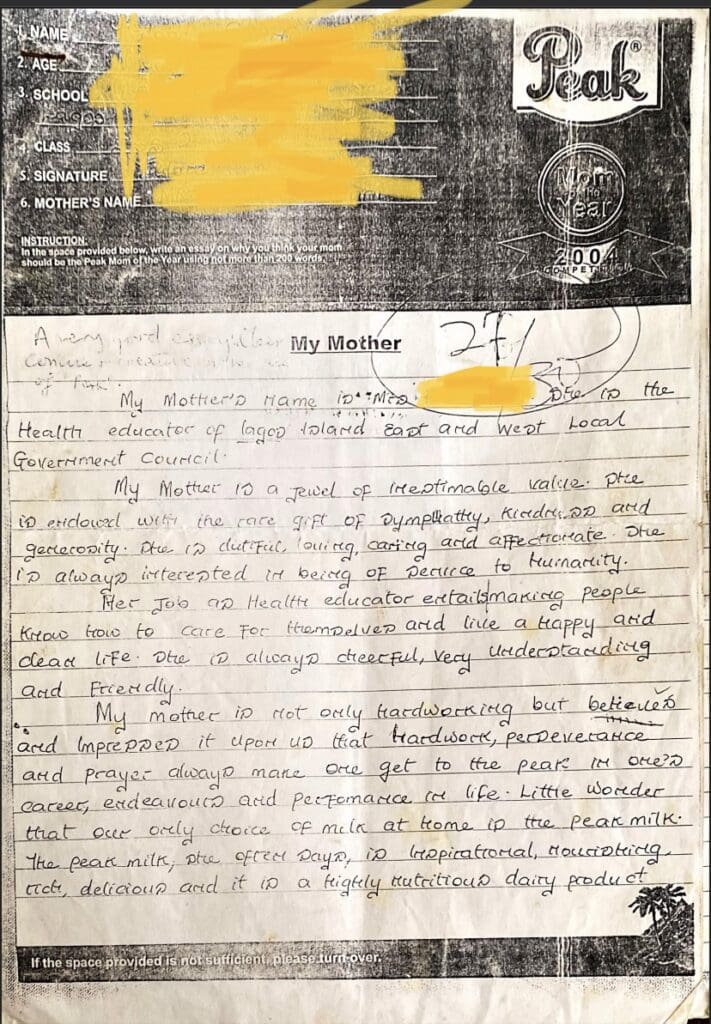 1. NAME
2. AGE
3. SCHOOL
4. CLASS
5. SIGNATURE
6. MOTHER'S NAME
Peak®
Mom
of the
Year
2004
COMPETITION
INSTRUCTION:
In the space provided below, write an essay on why you think your mom
should be the Peak Mom of the Year using not more than 200 words.
A very good essay. Clear
of "Peak".
27/30
My Mother
My Mother's name is Mrs She is the
Health educator of Lagos Island East and West Local
Government Council.
My Mother is a jewel of inestimable value. She
is endowed with the rare gift of sympathy, kindness and
generosity. She is dutiful, loving, caring and affectionate. She
is always interested in being of service to humanity.
Her job as Health educator entails making people
know how to care for themselves and live a happy and
clean life. She is always cheerful, very understanding
and Friendly.
My mother is not only hardworking but believes
and impresses it upon us that hardwork, perseverance
and prayer always make one get to the peak in one's
career, endeavours and perfomance in life. Little wonder
that our only choice of milk at home is the peak milk.
The peak milk, she often says, is inspirational, nourishing,
rich, delicious and it is a highly nutritious dairy product
If the space provided is not sufficient, please turn over.